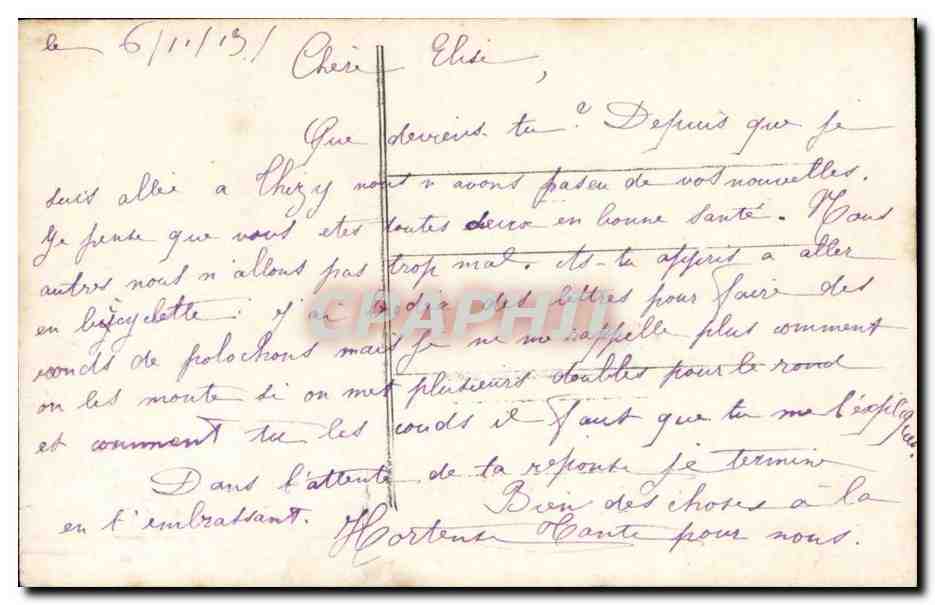 le 6/11/19/
Chère Elise,
Que deviens-tu? Depuis que je
suis allée a Thizy nous n'avons pas eu de vos nouvelles.
Je pense que vous etes toutes deux en bonne santé. Nous
autres nous n'allons pas trop mal. As-tu appris a aller
en bicyclette; des lettres pour faire des
ronds de polochons mais je ne me rappelle plus comment
on les monte si on met plusieurs doubles pour le rond
et comment tu les couds il faut que tu me l'expliques.
Dans l'attente de ta réponse je termine
en t'embrassant. Bien des choses a la
Hortense Tante pour nous.
CPAPHIL